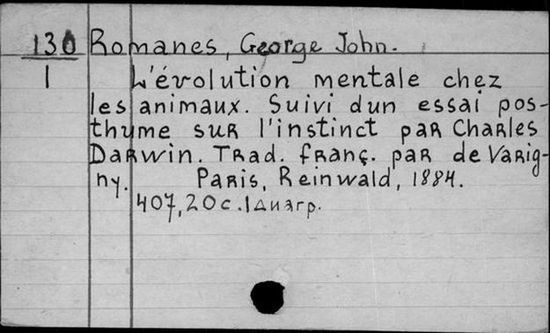 130 Romanes, George John.
1 L'évolution mentale chez
les animaux. Suivi dun essai pos-
thume sur l'instinct par Charles
Darwin. Trad. franç. par de Varig-
ny. Paris, Reinwald, 1884.
407,20 с. 1 диагр.